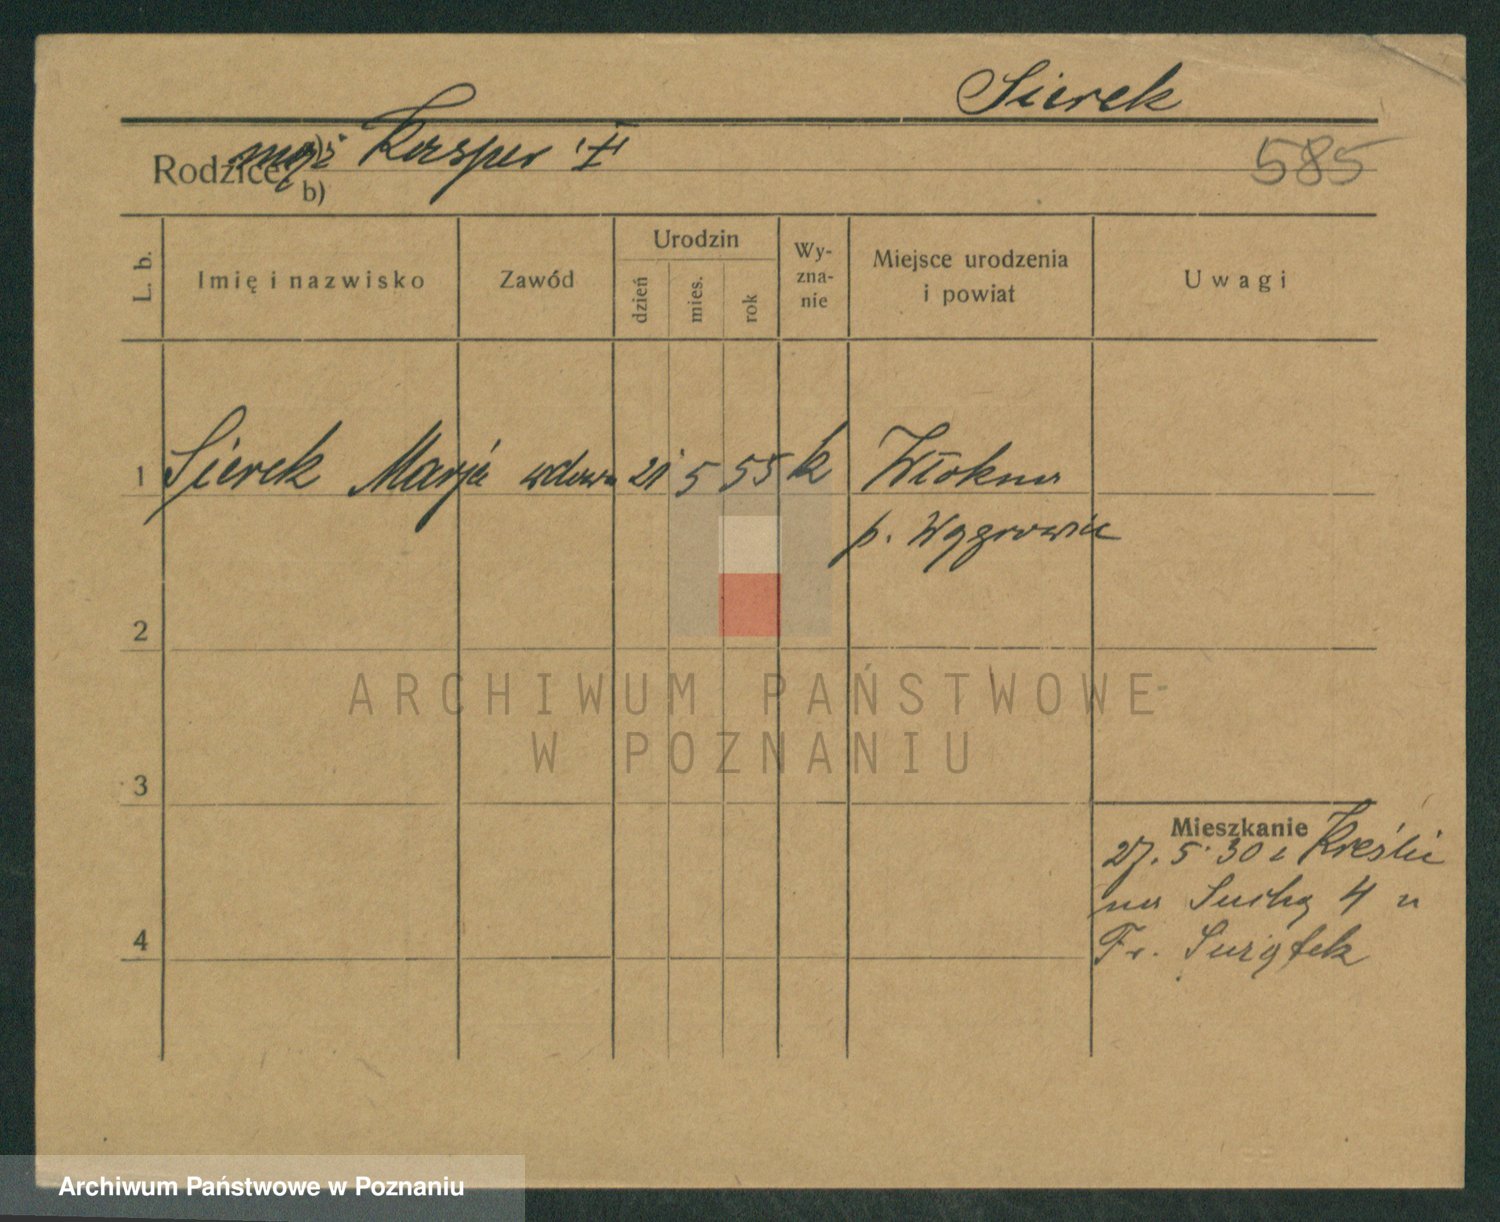 Sierek
Rodzice
mąż Kasper
b)
585
L. b.
Imię i nazwisko
Zawód
Urodzin
dzień
mies.
rok
Wy-
zna-
nie
Miejsce urodzenia
i powiat
Uwagi
1 Sierek Marja wdowa 21 5 55 k Włókna
p. Wągrowiec
2
ARCHIWUM PAŃSTWOWE
W POZNANIU
3
Mieszkanie
27. 5. 30 z
na Suchą 4 u
Fr.
4
Archiwum Państwowe w Poznaniu